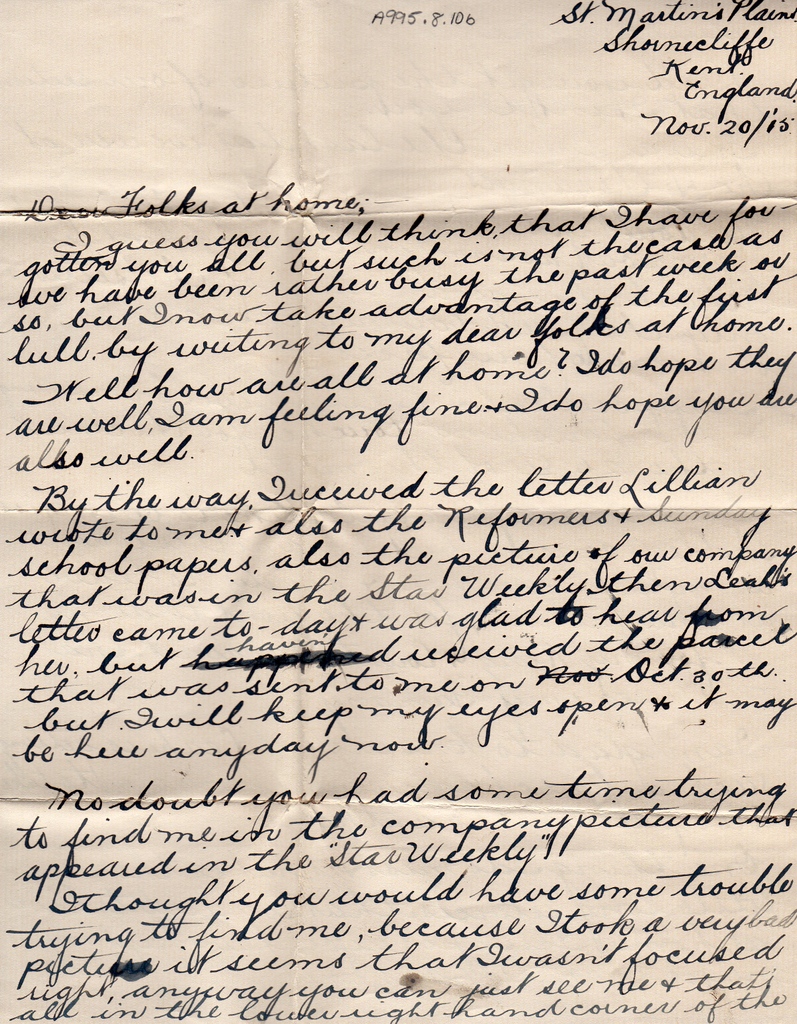 A995.8.106
St. Martin's Plains
Shornecliffe
Kent.
England.
Nov. 20/15.
Dear Folks at home;-
I guess you will think, that I have for-
gotten you all, but such is not the case as
we have been rather busy the past week or
so, but I now take advantage of the first
lull, by writing to my dear folks at home.
Well how are all at home? I do hope they
are well, I am feeling fine & I do hope you are
also well.
By the way, I received the letter Lillian
wrote to me & also the Reformers & Sunday
school papers, also the picture of our company
that was in the Star Weekly, then Leah's
letter came to-day & was glad to hear from
her, but haven't received the parcel
that was sent to me on Nov. Oct. 30th.
but I will keep my eyes open & it may
be here anyday now.
No doubt you had some time trying
to find me in the company picture that
appeared in the "Star Weekly"!
I thought you would have some trouble
trying to find me, because I took a very bad
picture it seems that I wasn't focused
right, anyway you can just see me & that's
all in the lower right hand corner of the